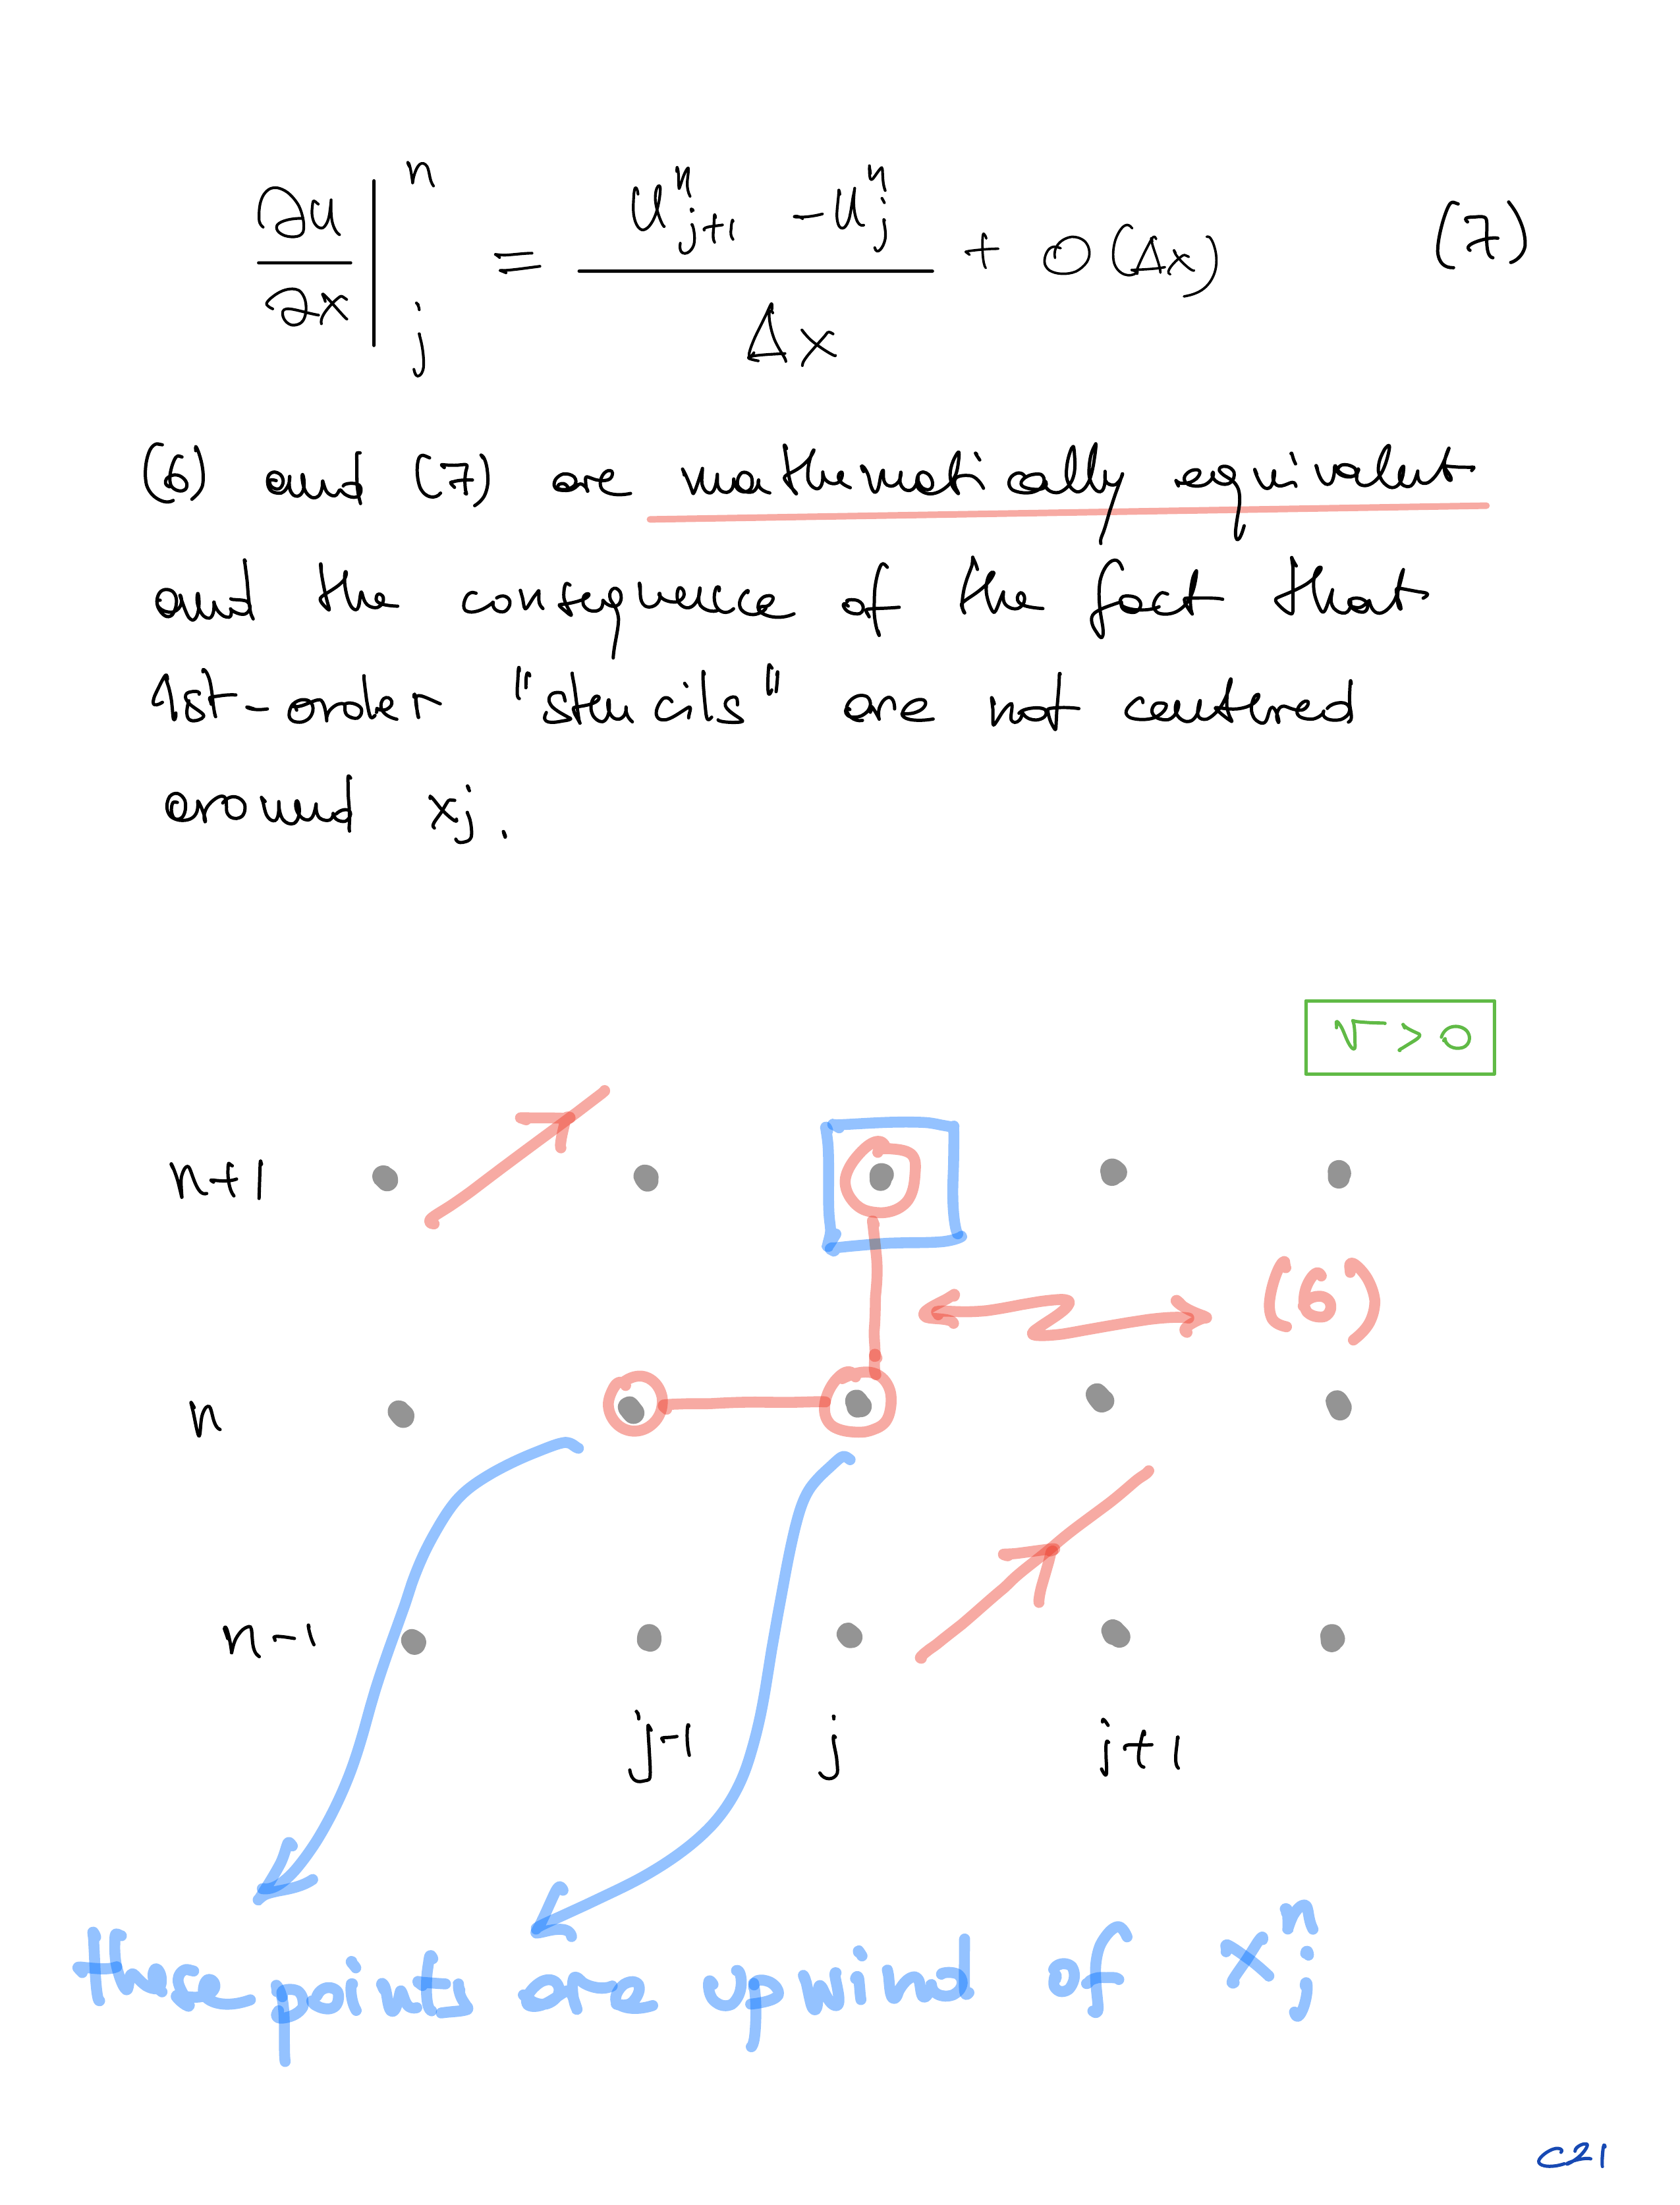 ∂u/∂x |ⁿ_j = (uⁿ_{j+1} - uⁿ_j)/Δx + O(Δx) (7)
(6) and (7) are mathematically equivalent
and the consequence of the fact that
1st-order "stencils" are not centred
around xj.
v > 0
n+1
(6)
n
n-1
j-1 j j+1
these points are upwind of xⁿ_j
C21